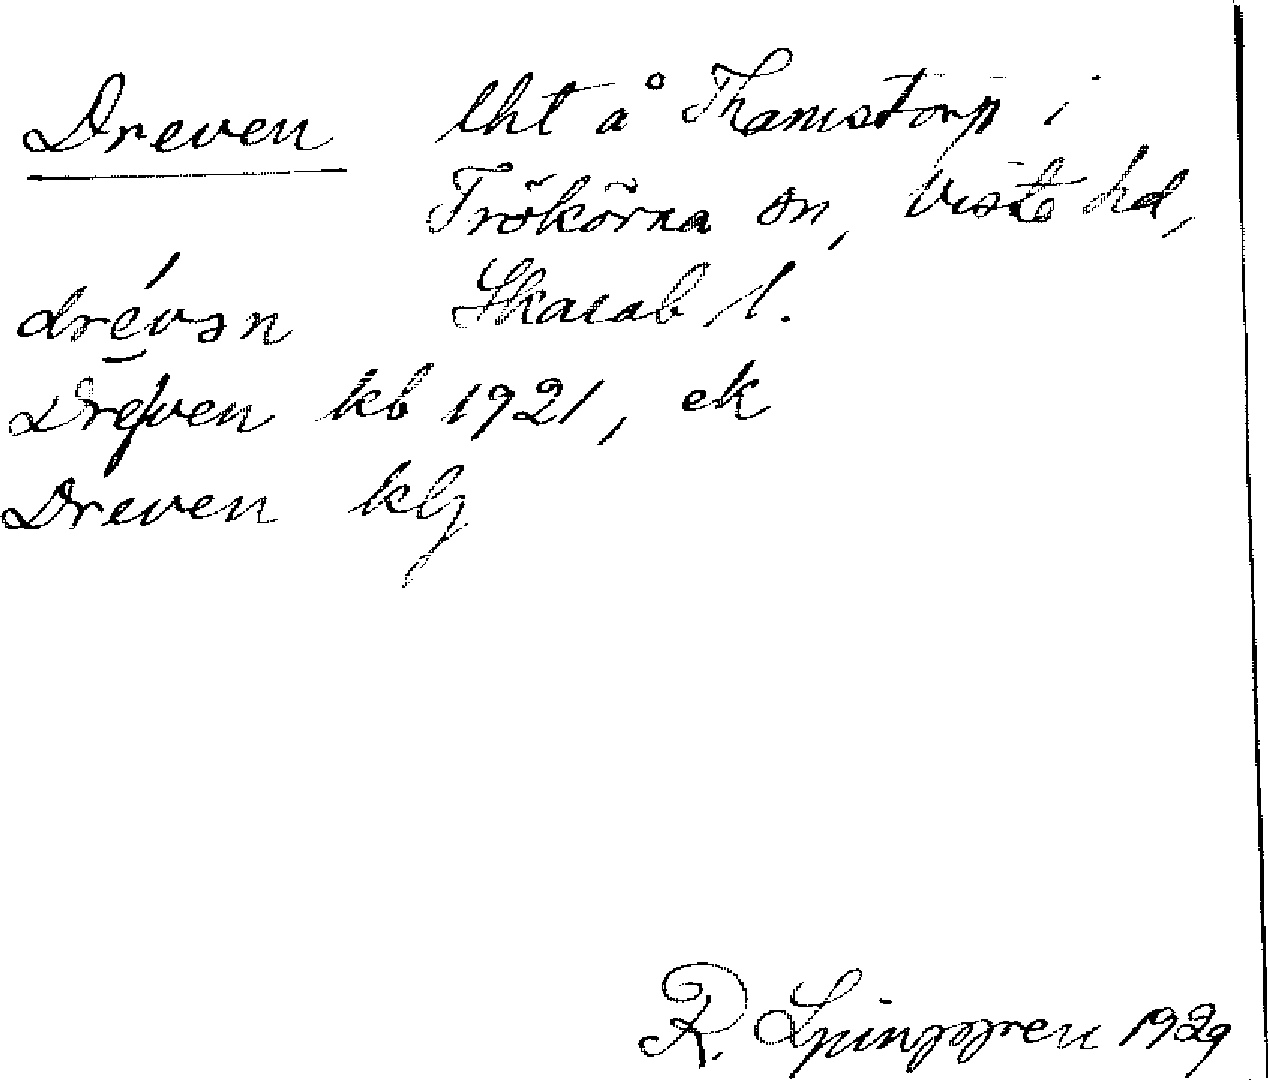 Dreven lht å Thamstorp i
Trökörna sn, Viste hd,
Skarab l.
drévən
Dreven kb 1921, ek
Dreven klj
R. Ljunggren 1929